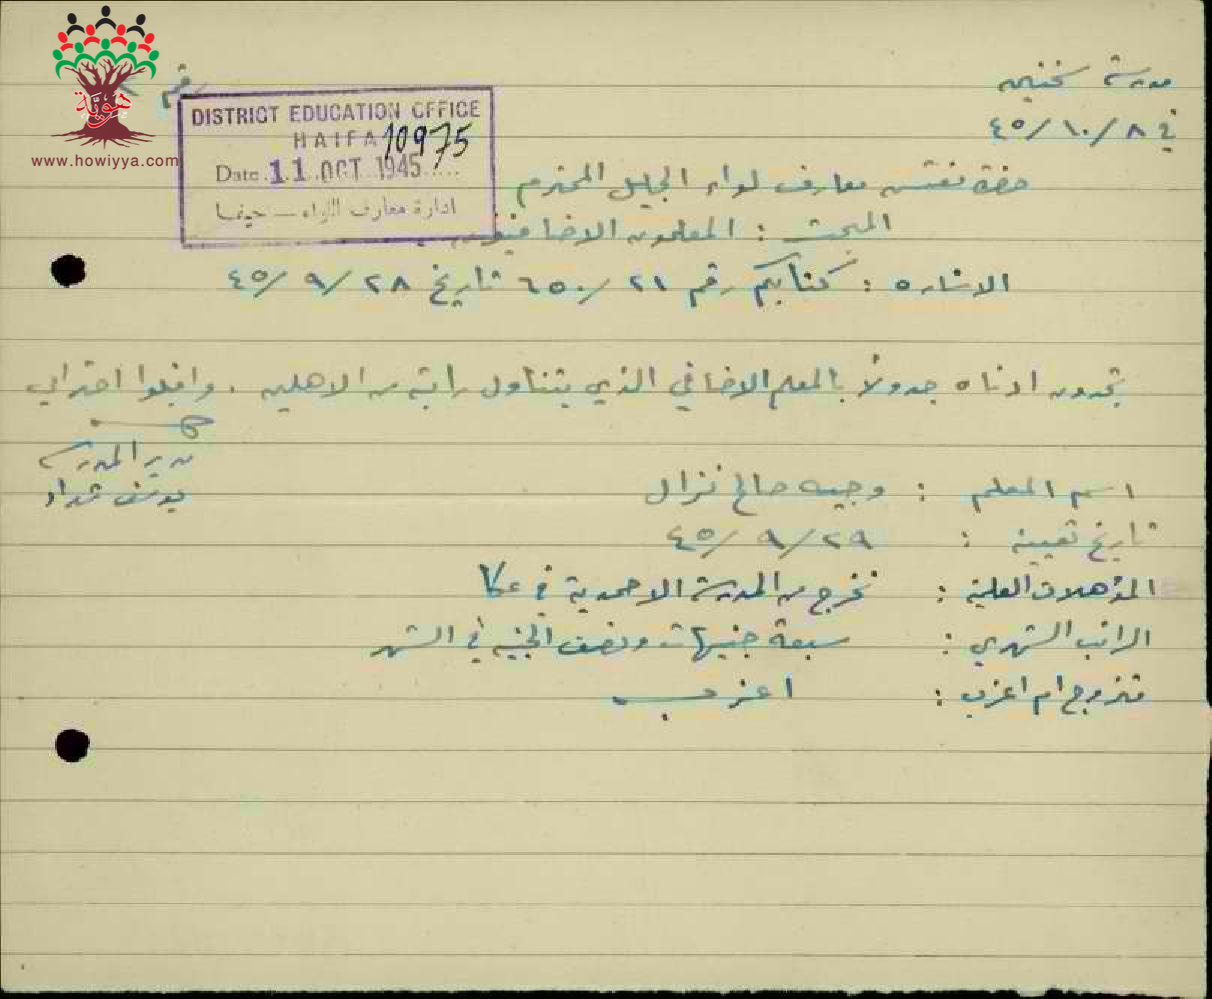 مدرسة سخنين
في ٨/١٠/٤٥
رقم
هوية
www.howiyya.com
DISTRICT EDUCATION OFFICE
HAIFA 10975
Date 11 OCT 1945
ادارة معارف اللواء – حيفا
حضرة مفتش معارف لواء الجليل المحترم
المبحث : المعلمون الاضافيون
الاشارة : كتابكم رقم ٢١/٦٥٠ تاريخ ٢٨/٩/٤٥
تجدون ادناه جدولاً بالمعلم الاضافي الذي يتناول راتبه من الاهلين . واقبلوا احترامي
مدير المدرسة
يوسف شداد
اسم المعلم : وجيه صالح نزال
تاريخ تعيينه : ٢٩/٩/٤٥
المؤهلات العلمية : تخرج من المدرسة الاحمدية في عكا
الراتب الشهري : سبعة جنيهات ونصف الجنيه في الشهر
متزوج ام اعزب : اعزب